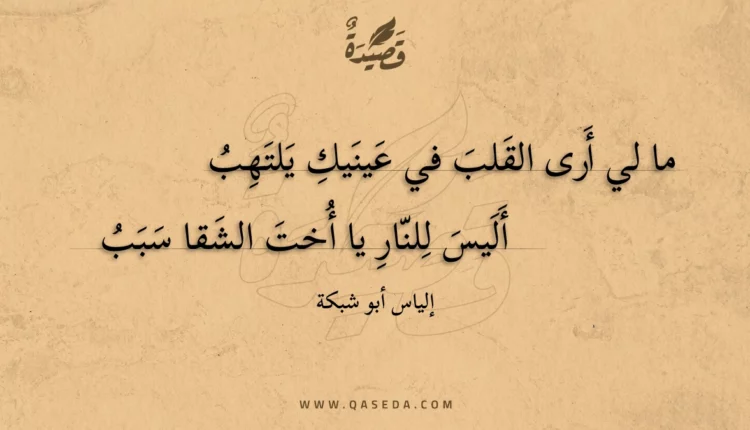 قَصِيدَةٌ
ما لي أَرى القَلبَ في عَينَيكِ يَلتَهِبُ
أَلَيسَ لِلنّارِ يا أُختَ الشَقا سَبَبُ
إلياس أبو شبكة
WWW.QASEDA.COM